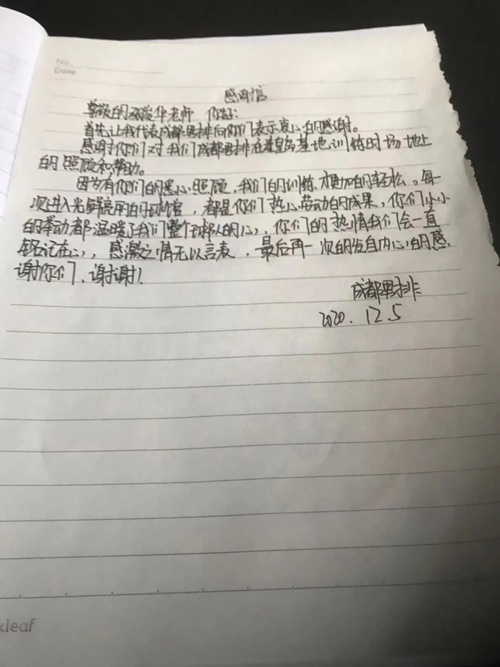 No.
Date
感谢信
尊敬的 华老师 你好:
首先让我代表成都男排向你们表示衷心的感谢。
感谢你们对我们成都男排在秦皇岛基地训练时场地上
的照顾和帮助。
因为有你们的悉心照顾,我们的训练才更加的轻松。每一
次进入光鲜亮丽的球馆,都是你们热心劳动的成果,你们小小
的举动都温暖了我们整个球队的心,你们的热情我们会一直
铭记在心,感激之情无以言表,最后再一次的发自内心的感
谢你们,谢谢!
成都男排
2020.12.5
xleaf